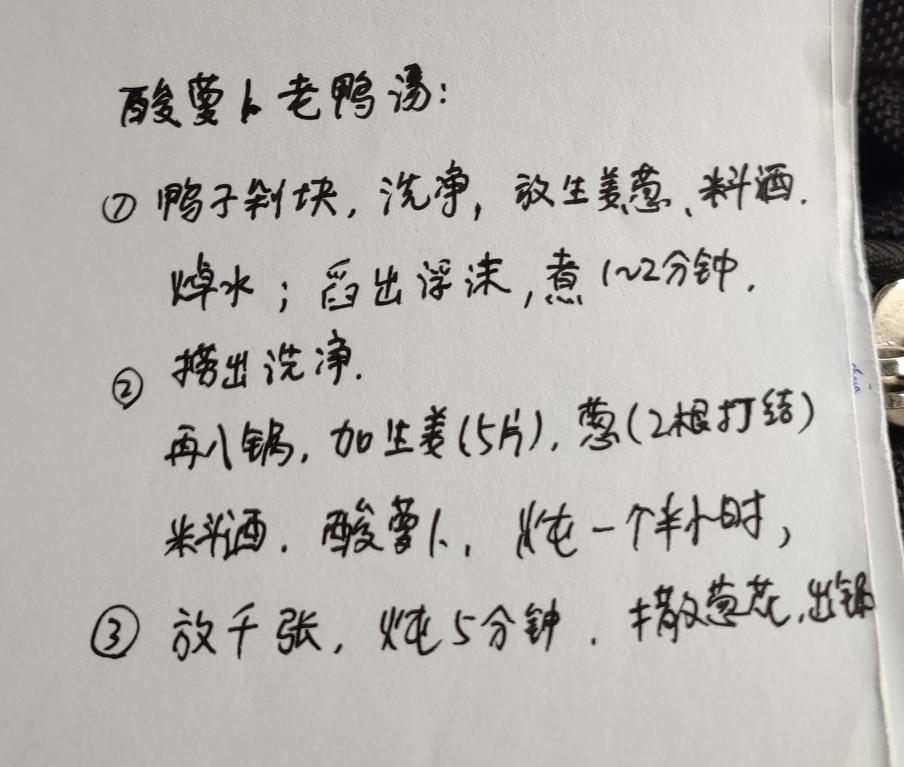 酸萝卜老鸭汤：
① 鸭子剁块，洗净，放生姜葱、料酒.
焯水；舀出浮沫，煮1~2分钟.
② 捞出洗净.
再入锅，加生姜(5片)，葱(2根打结)
料酒．酸萝卜，炖一个半小时，
③ 放千张，炖5分钟．撒葱花，出锅